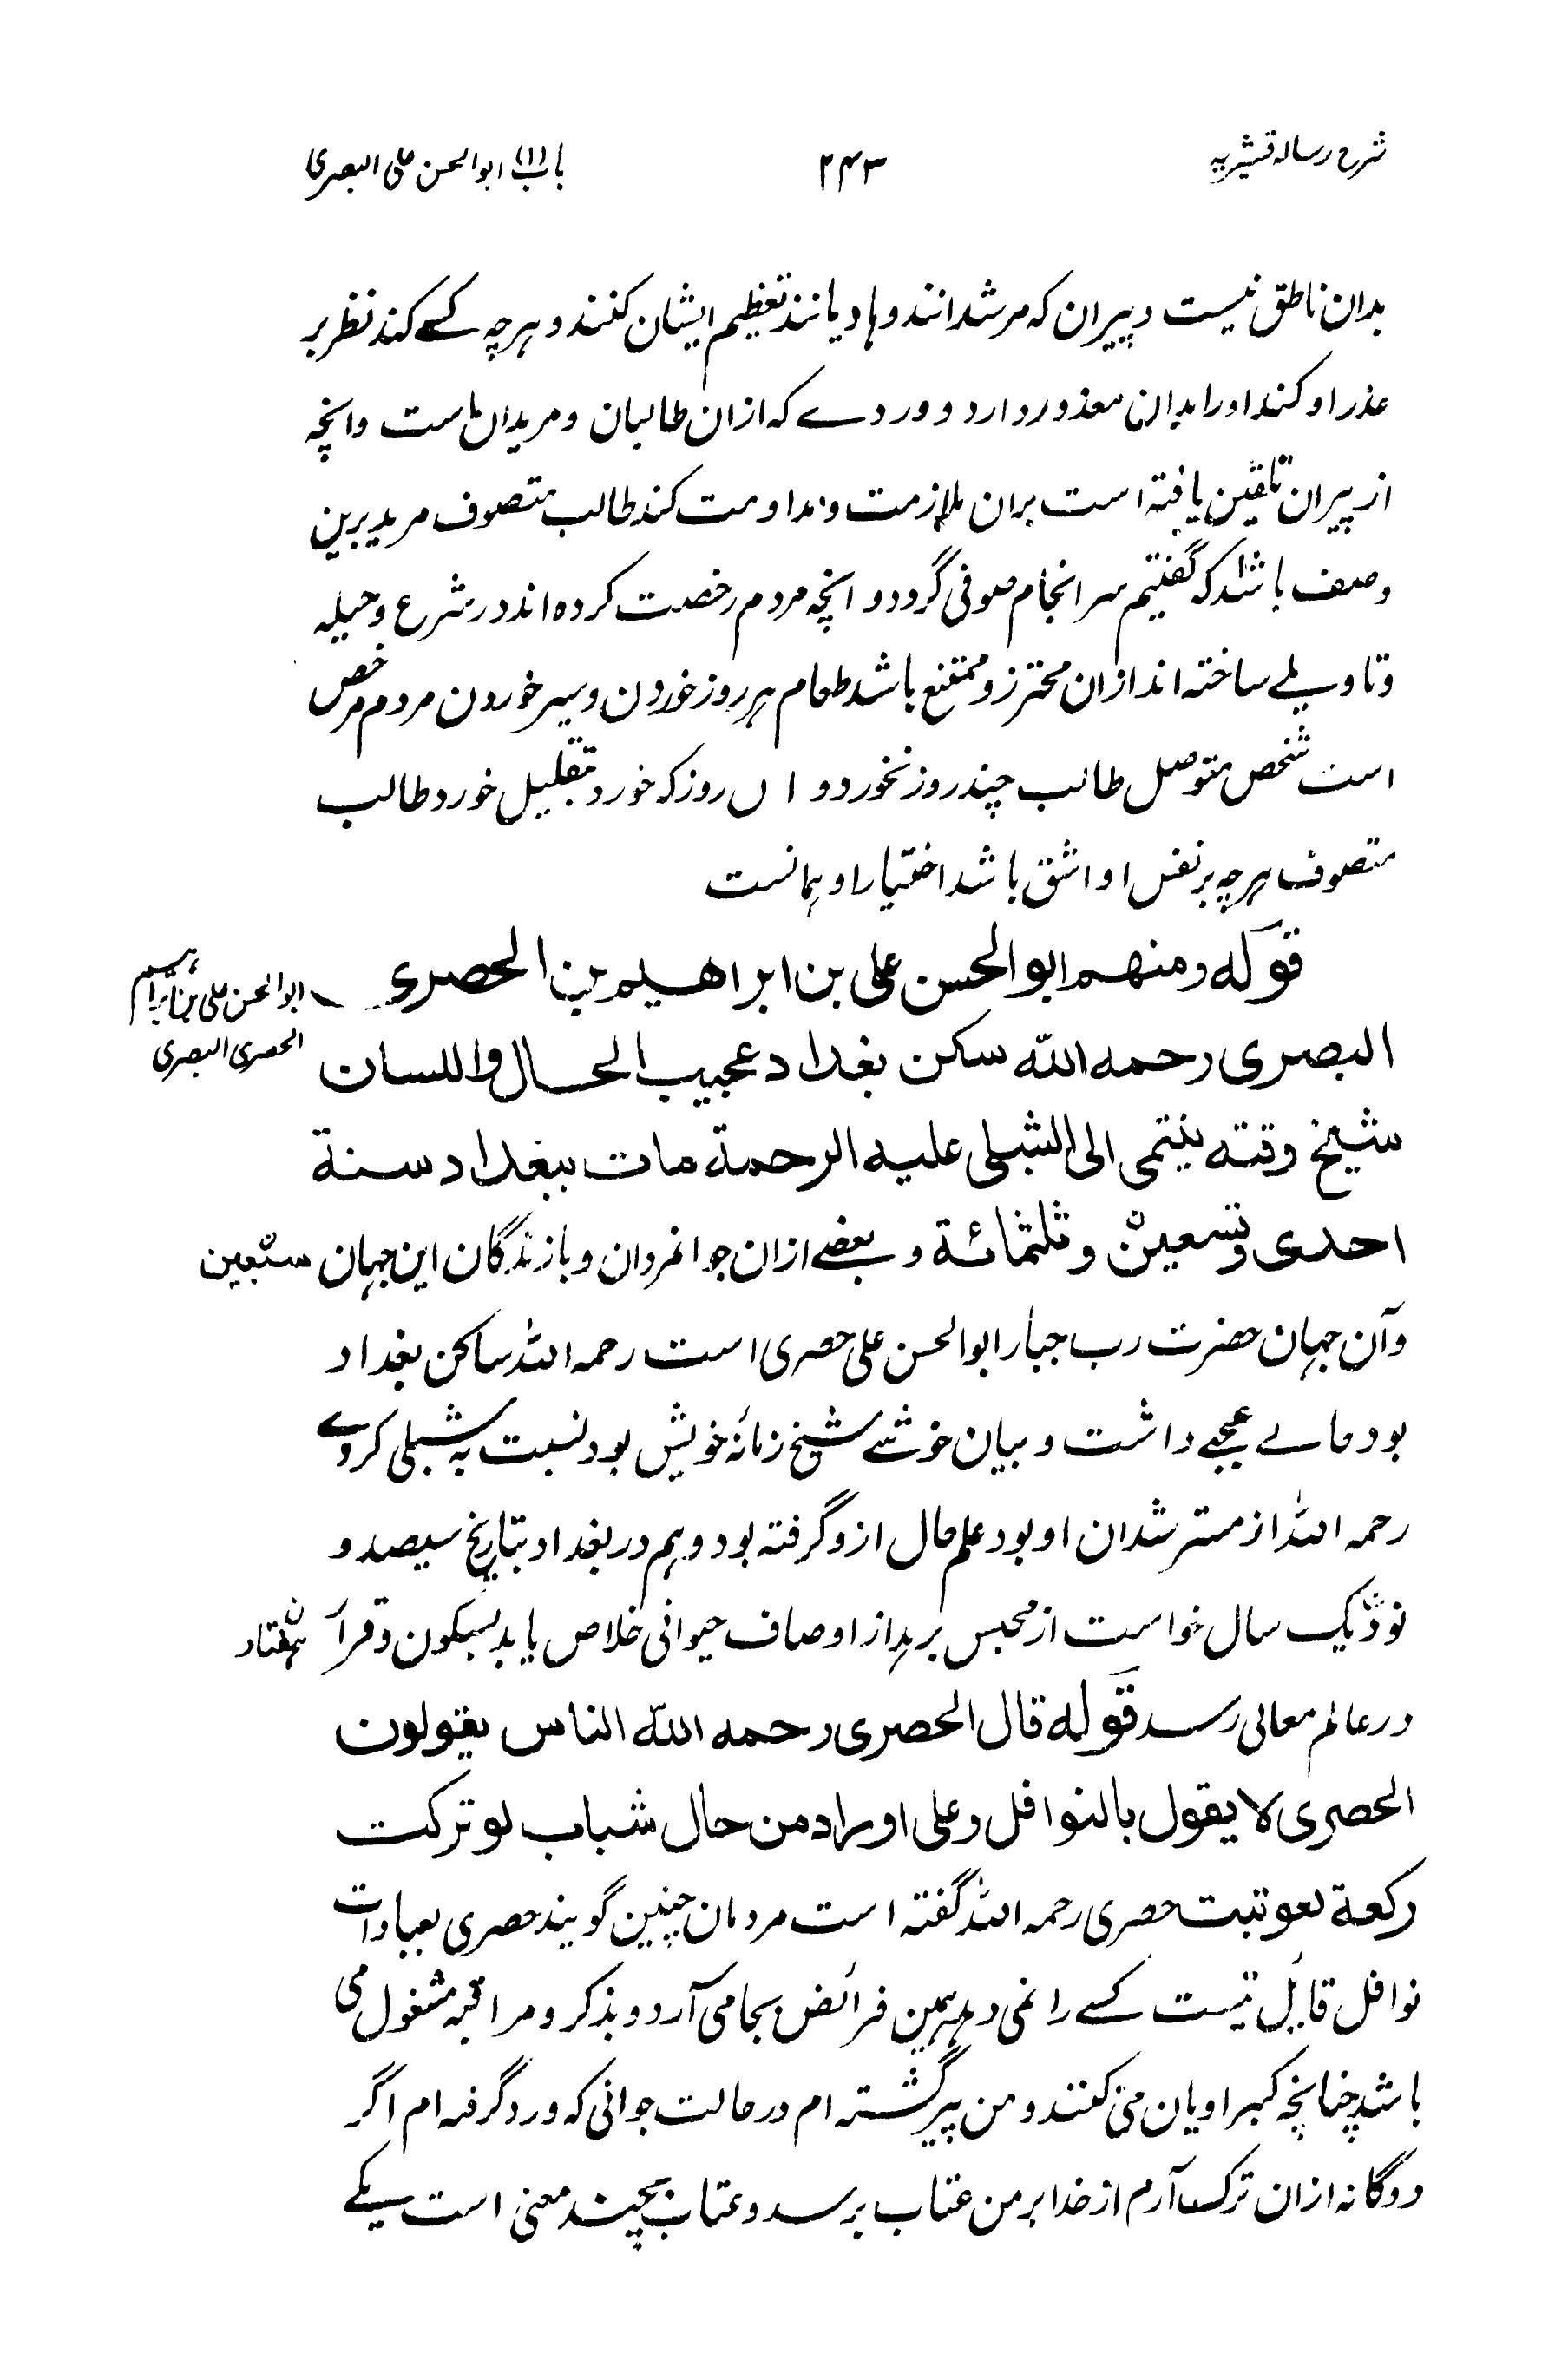 شرح رسالہ قشیریہ
۲۴۳
باب (۱) ابوالحسن علی البصری
بدان ناطق نیست و پیران که مرشدانند و هادیانند تعظیم ایشان کنند و هرچه کسے کند نظر بر
عذر او کند او را بدان معذور دارد و وردے که از ان طالبان و مریدان ماست وانچه
از پیران تلقین یافته است بران ملازمت و مداومت کند طالب متصوف مرید برین
وصف باشد که گفتیم سرانجام صوفی گردد و انچه مردم رخصت کرده اند در شرع و حیله
و تاویلے ساخته اند ازان محترز و ممتنع باشد طعام هر روز خوردن و سیر خوردن مردم مرخص
است شخص متوصل طالب چند روز نخورد و ا ں روز که خورد بتقلیل خورد طالب
متصوف هرچه بر نفس او اشق باشد اختیار او همانست
قوله ومنهم ابوالحسن علی بن ابراهیم بن الحصری
ابوالحسن علی بن ابراہیم
الحصری البصری
البصری رحمه الله سکن بغداد عجیب الحال واللسان
شیخ وقته ینتمی الی الشبلی علیه الرحمة مات ببغداد سنة
احدی وتسعین وثلثمائة و بعضے ازان جوانمردان و بازندگان این جهان
سبعین
وآن جهان حضرت رب جبار ابوالحسن علی حصری است رحمه الله ساکن بغداد
بود حالے عجبے داشت و بیان خوشے شیخ زمانه خویش بود نسبت به شبلی کردے
رحمه الله از مسترشدان او بود علم حال ازو گرفته بود و هم در بغداد بتاریخ سیصد و
نود یک سال خواست از محبس برهد از اوصاف حیوانی خلاص یابد بسکون و قرار
ہفتاد
در عالم معالی رسد قوله قال الحصری رحمه الله الناس یقولون
الحصری لا یقول بالنوافل وعلی اوراد من حال شباب لو ترکت
رکعة لعوتبت حصری رحمه الله گفته است مردمان چنین گویند حصری بعبادات
نوافل قایل نیست کسے را نمی دهد همین فرائض بجا می آرد و بذکر و مراقبه مشغول می
باشد چنانچه کبراویان می کنند و من پیر گشته ام در حالت جوانی که ورد گرفته ام اگر
دوگانه ازان ترک آرم از خدا بر من عتاب برسد و عتاب بچند معنی است یکے